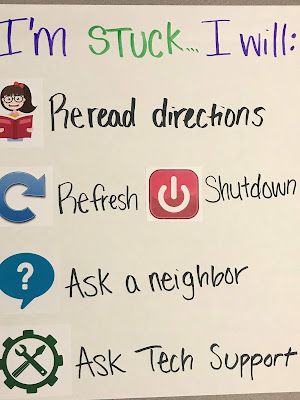 I'm STUCK... I will:
Reread directions
Refresh Shutdown
?
Ask a neighbor
Ask Tech Support